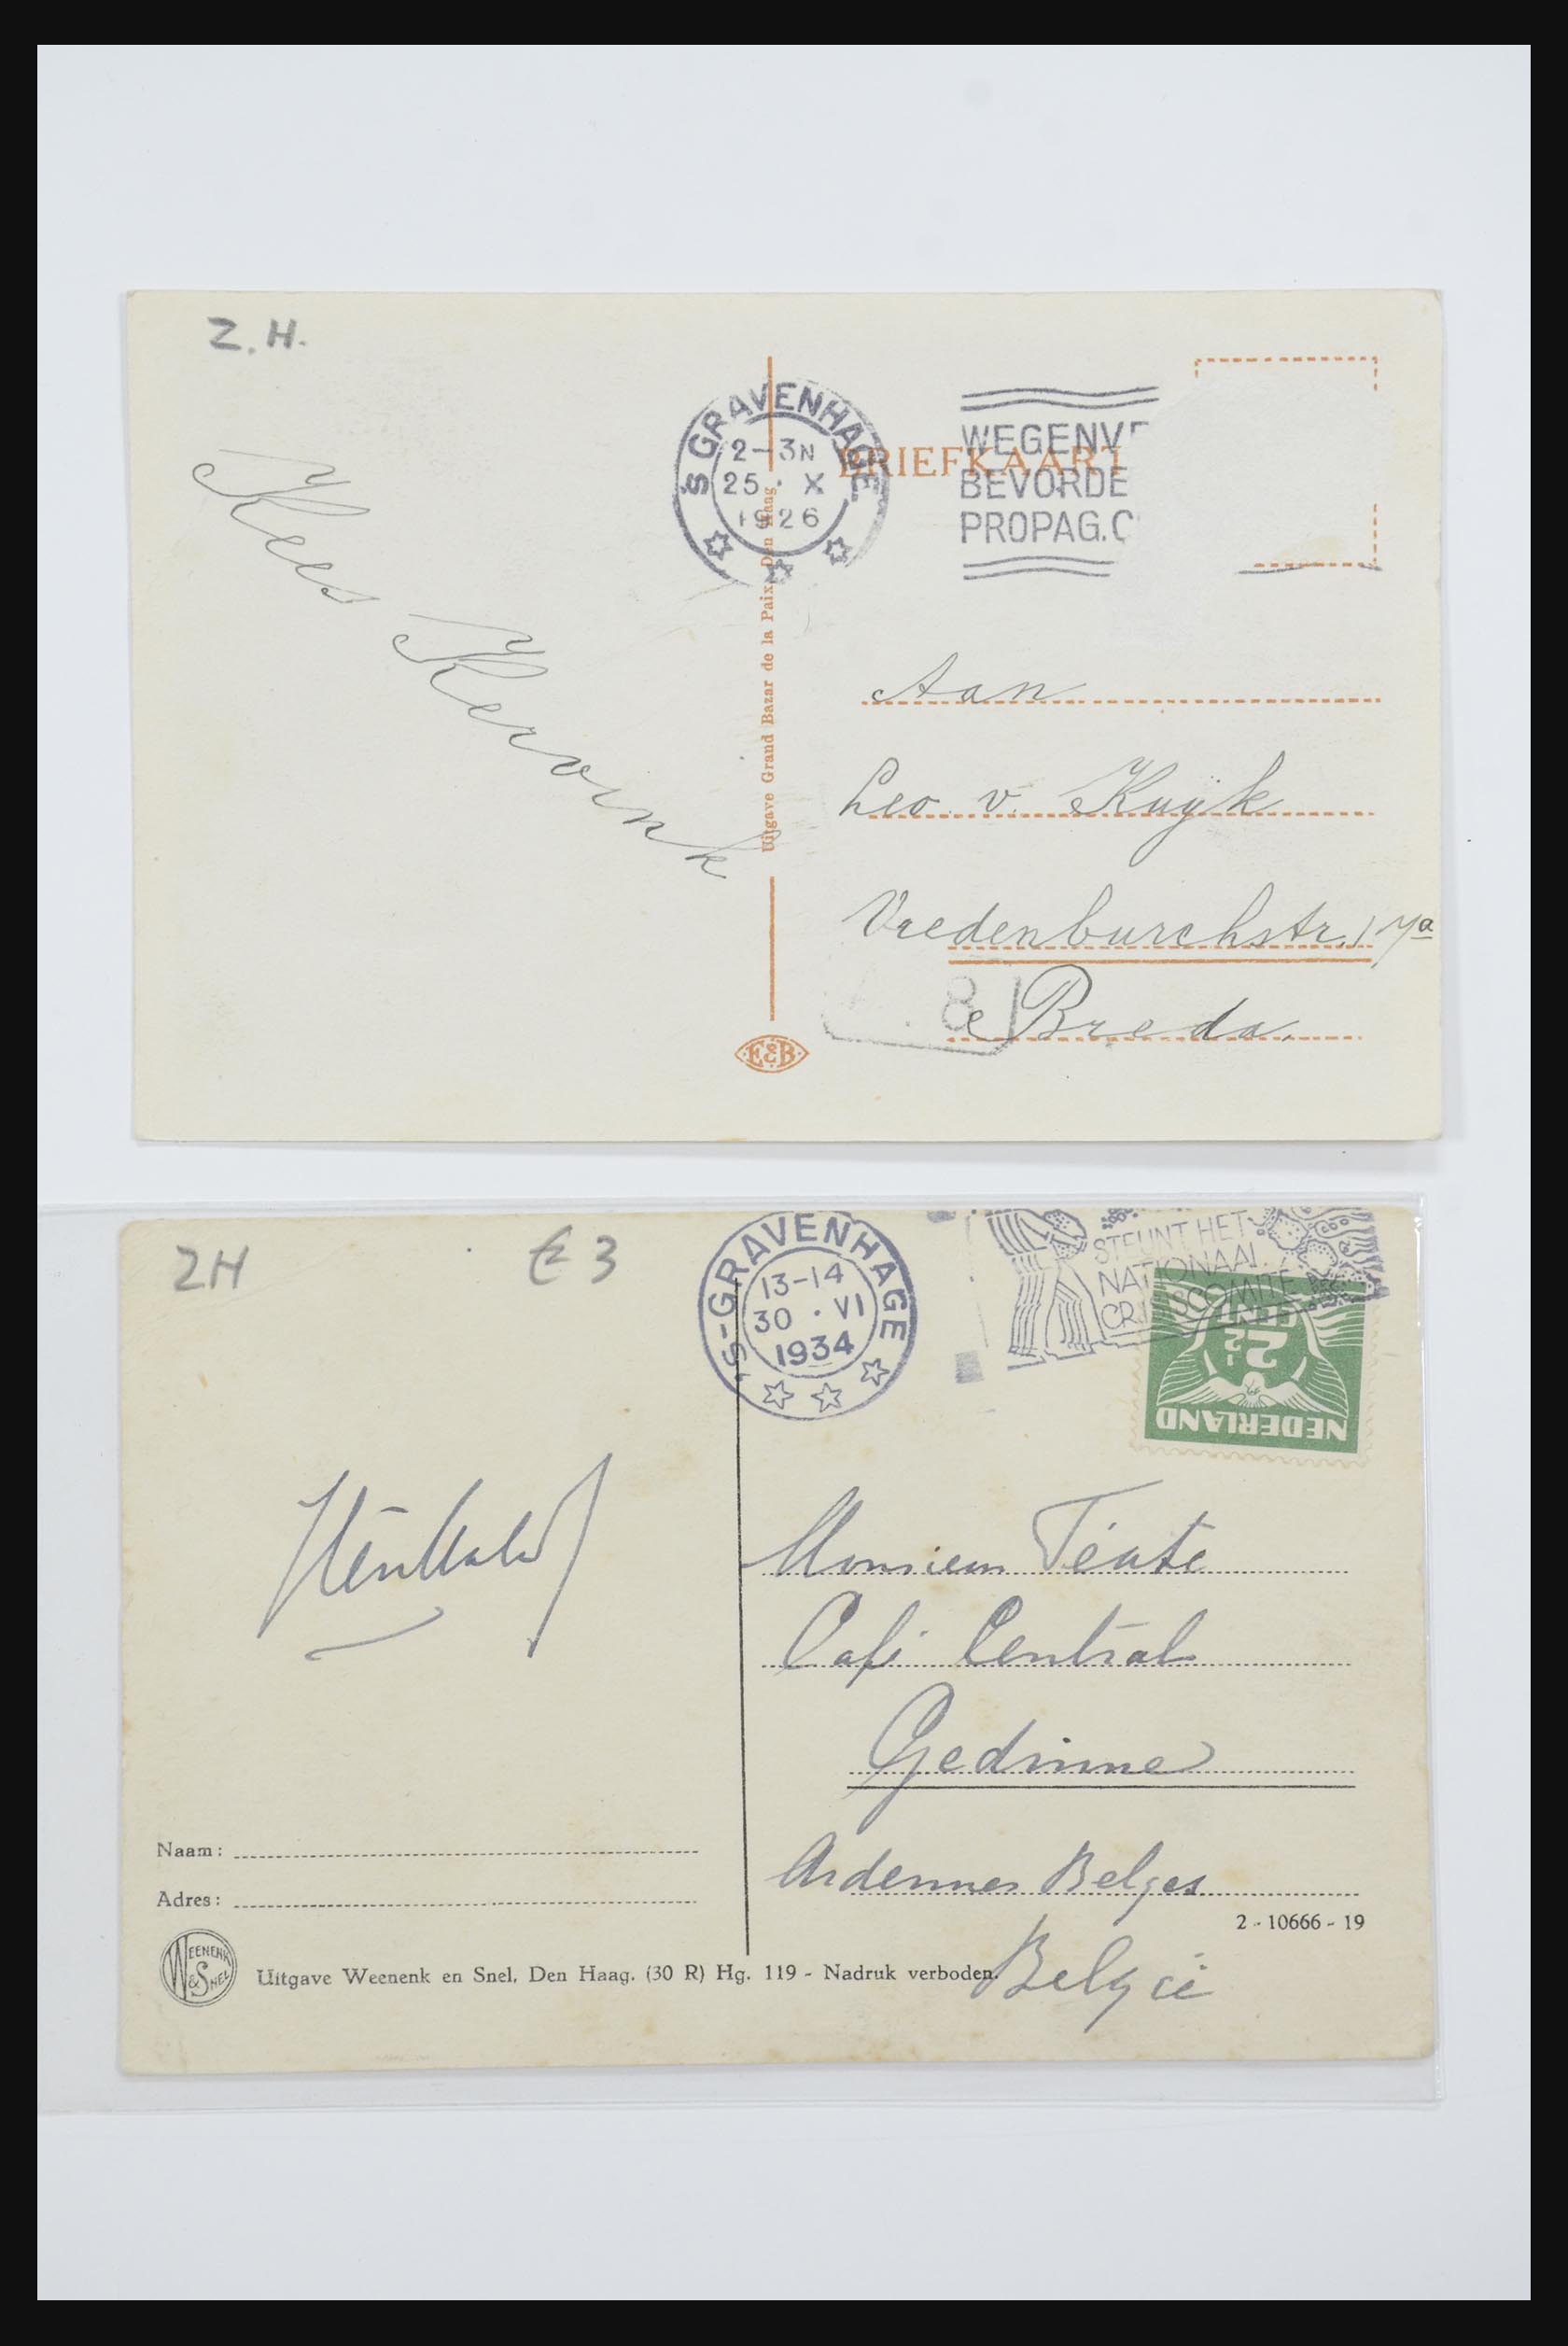 Z.H.
'S GRAVENHAGE
2-3N
25. X
1926
WEGENVE
BEVORDE
PROPAG.C
BRIEFKAART
Kees Kervink
Uitgave Grand Bazar de la Paix, Den Haag
Aan
Leo v. Kuÿk
Vredenburchstr. 17a
Breda.
8
E&B
ZH
€ 3
'S-GRAVENHAGE
13-14
30 . VI
1934
STEUNT HET
NATIONAAL
CRISISCOMITÉ
2½
CENT
NEDERLAND
Monsieur
Café Central
Gedinne
Ardennes Belges
België
Naam:
Adres:
2 - 10666 - 19
WEENENK & SNEL
Uitgave Weenenk en Snel, Den Haag. (30 R) Hg. 119 - Nadruk verboden.